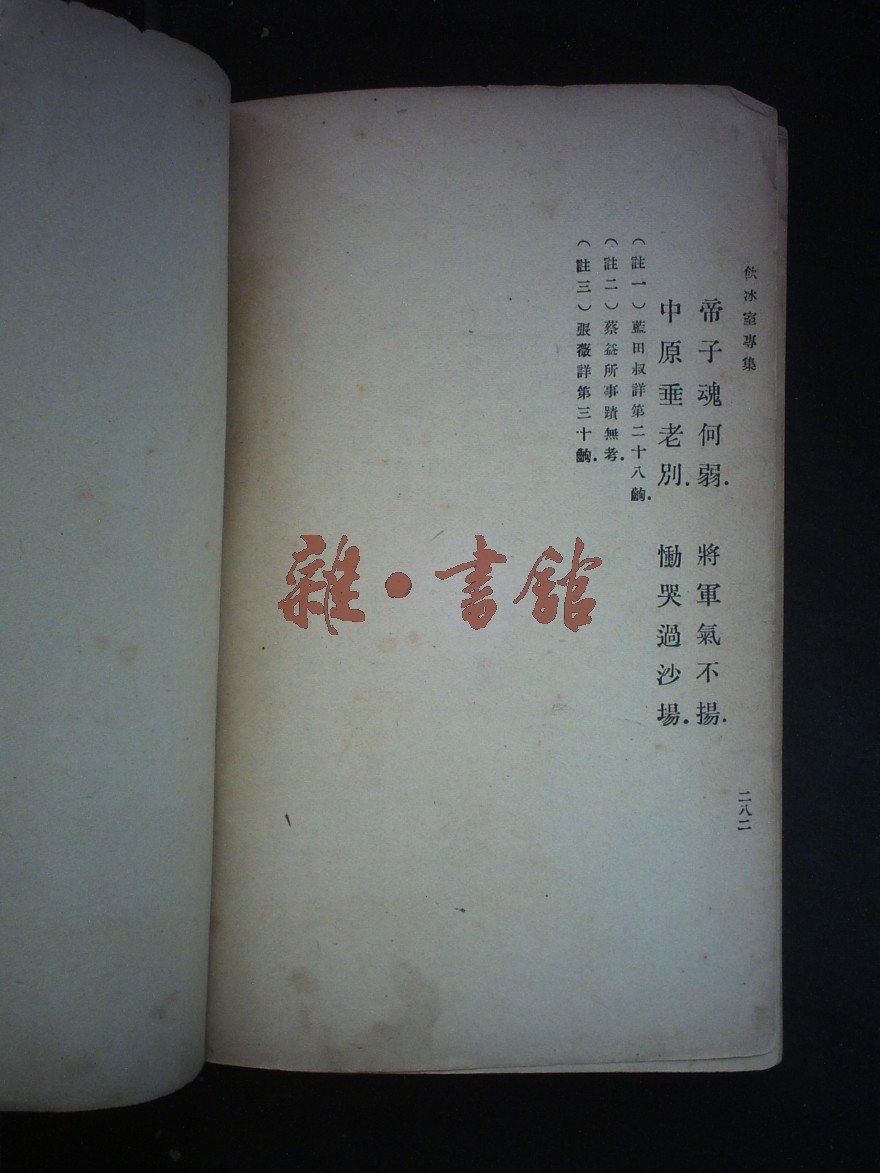 飲冰室專集
帝子魂何弱．　將軍氣不揚．
中原垂老別．　慟哭過沙場．
（註一）藍田叔詳第二十八齣．
（註二）蔡益所事蹟無考．
（註三）張薇詳第三十齣．
二八二
雜·書館